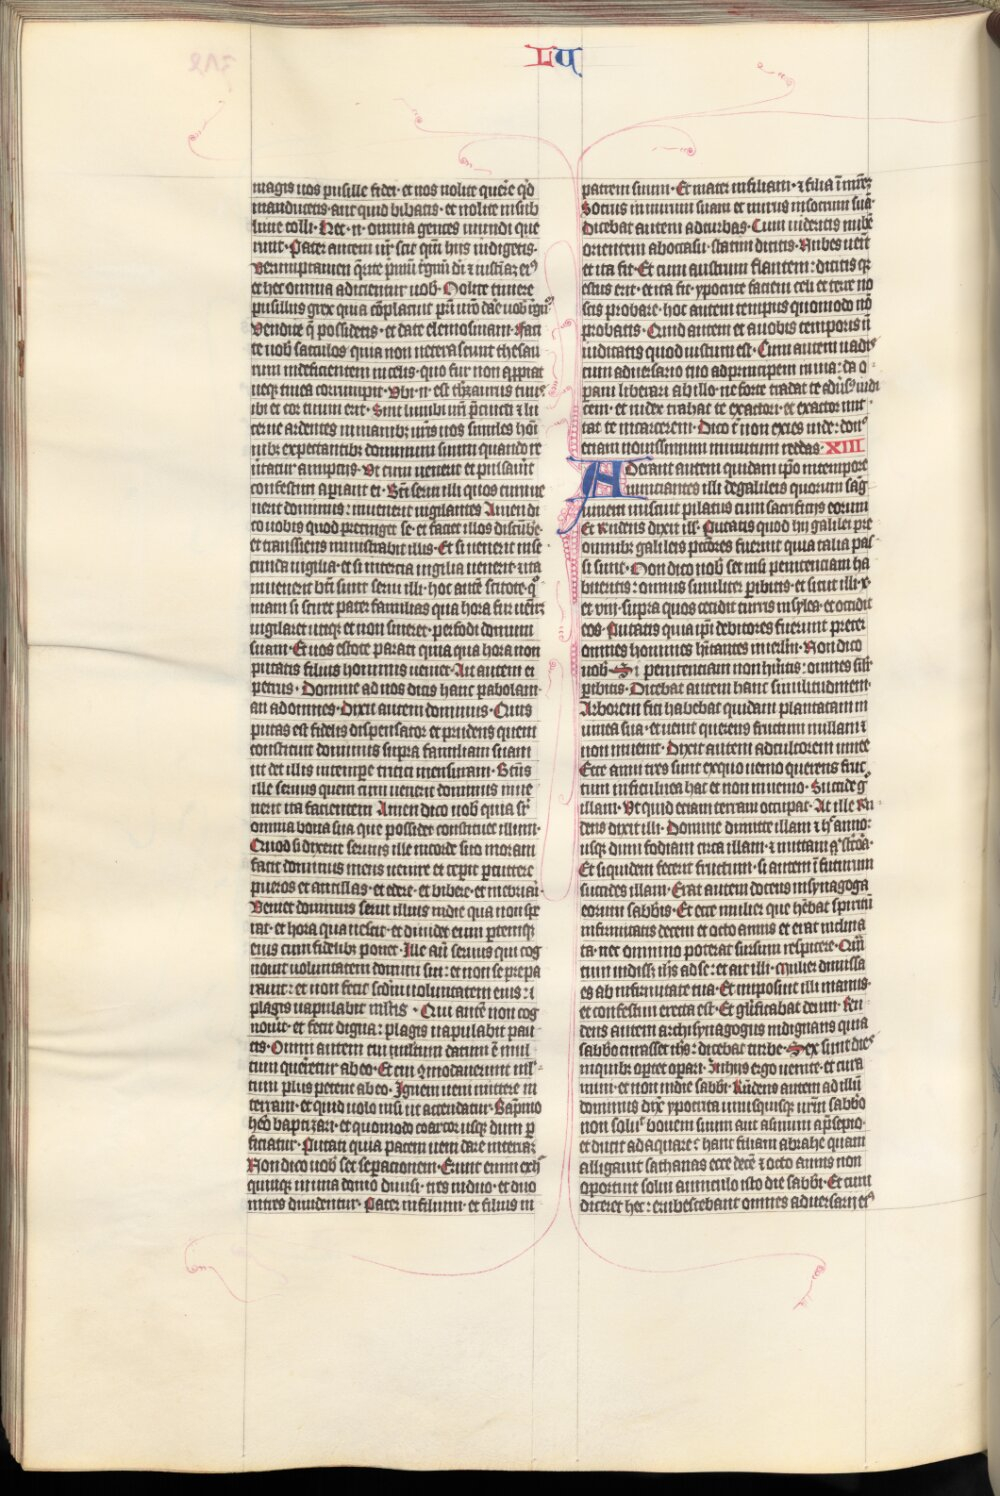 LU
magis uos pusille fidei · et uos nolite querẽ qd̃
manducetis · aut quid bibatis · et nolite in sub
lime tolli · Hec · n̄ · omnia gentes mundi que
runt · Pater autem ur̃ scit qm̃ hiis indigetis ·
Verumptamen q̃rite primũ r̃gnũ di ⁊ iusticiaz eiꝰ
et hec omnia adicientur uob̵ · Nolite timere
pusillus grex quia cõplacuit pri uro dãe uob̵ rgnũ
Vendite q̃ possidetis · et date elemosinam · Faci
te uob̵ sacculos quia non ueterascunt thesau
rum indeficientem in celis · quo fur non aꝓpiat
neqꝫ tinea corrumpit · Vbi · n̄ · est th̃zaurus tuus
ibi et cor tuum erit · Sint lumbi urĩ p̃cincti ⁊ lu
cerne ardentes in manibꝫ uris ⁊ uos similes hoĩ
nibꝫ expectantibꝫ dominum suum quando re
uertatur a nuptiis · Vt cum uenerit et pulsauit̃
confestim aperiant ei · Bti serui illi quos cum ue
nerit dominus : inuenerit uigilantes Amen di
co uobis quod precinget se · et faciet illos discũbe ·
et transiens ministrabit illis · Et si uenerit in se
cunda uigilia · et si in tercia uigilia uenerit · ⁊ ita
inuenerit bti sunt serui illi · hoc autẽ scitote · qͦ
niam si sciret pater familias qua hora fur ueñit
uigilaret utiqꝫ et non sineret · perfodi domum
suam · Et uos estote parati quia qua hora non
putatis filius hominis ueniet · Ait autem ei
petrus · Domine ad nos dicis hanc pabolam ·
an ad omnes · Dixit autem dominus · Quis
putas est fidelis dispensator et prudens quem
constituit dominus supra familiam suam
ut det illis in tempe tritici mensuram · Bt̃us
ille seruus quem cum uenerit dominus inue
nerit ita facientem Amen dico uob̵ quia sr̃
omnia bona sua que possidet constituet illum ·
Quod si dixerit seruus ille in corde suo moram
facit dominus meus uenire et ceperit percutere
pueros et ancillas · et edere · et bibere · et inebriari ·
Veniet dominus serui illius in die qua non spe
rat · et hora qua nescit · et diuidet eum ꝑtemqꝫ
eius cum fidelibꝫ ponet · Ille aũt seruus qui cog
nouit uoluntatem domini sui : et non se prepa
rauit : et non fecit scdm̃ uoluntatem eius : i
plagis uapulabit multis · Qui autẽ non cog
nouit · et fecit digna : plagis uapulabit pau
cis · Omni autem cui multum datum ẽ mul
tum queretur ab eo · Et cui ꝯmodauerunt mul
tum plus petent ab eo · Ignem ueni mittere in
terram · et quid uolo nisi ut accendatur · Baptismo
hẽo baptizari · et quomodo coartor usqꝫ dum ꝑ
ficiatur · Putati quia pacem ueni dare in terraz
Non dico uob̵ set separacionem · Erunt enim ex h̃
quinqꝫ in una domo diuisi · tres in duo · et duo
in tres diuidentur · Pater in filium · et filius in
patrem suum · Et mater in filiam · ⁊ filia ĩ mr̃ez
Socrus in nurum suam et nurus in socrum suã ·
Dicebat autem ad turbas · Cum uideritis nubẽ
orientem ab occasu · statim dicitis · Nubes uenit
et ita fit · Et cum austrum flantem : dicitis qꝫ
estus erit · et ita fit · ypocrite faciem celi et terre no
stis probare · hoc autem tempus quomodo nõ
probatis · Quid autem et a uobis temporis ñ
iudicatis quod iustum est · Cum autem uadis
cum aduersario tuo ad principem in uia : da o ·
peram liberari ab illo · ne forte tradat te ad iudi
cem · et iudex trahat te exactori · et exactor mit ·
tat te in carcerem · Dico t̃ non exies inde : donͨ
etiam nouissimum minutum reddas · XIII
Aderant autem quidam ip̃o in tempore
nunciantes illi de galileis quorum sãg
uinem miscuit pilatus cum sacrificiis eorum
Et Rñdens dixit ill̵ · Putatis quod hii galilei pre
omnibꝫ galileis pctõres fuerint quia talia pas
si sunt · Non dico uob̵ set nisi penitenciam ha
bueritis : omnes similiter peribitis · et sicut illi · x ·
et viii · supra quos cecidit turris in syloa · et occidit
eos · Putatis quia ipi debitores fuerint preter
omnes homines hĩtantes in ierlm̃ · Non dico
uob̵ Si penitenciam non h̃ritis : omnes silr̃
ꝑibitis · Dicebat autem hanc similitudinem ·
Arborem fici habebat quidam plantatam in
uinea sua · et uenit querens fructum in illam ⁊
non inuenit · Dixit autem ad cultorem uinee
Ecce anni tres sunt ex quo uenio querens fruc
tum in ficulnea hac et non inuenio · Succide gͦ
illam · Vt quid eciam terram occupat · At ille Rñ
dens dixit illi · Domine dimitte illam ⁊ h̃ anno :
usqꝫ dum fodiam circa illam : ⁊ mittam stercora ·
Et siquidem fecerit fructum · si autem ĩ futurum
succides illam · Erat autem docens in synagoga
eorum sabb̃is · Et ecce mulier que hẽbat spiritũ
infirmitatis decem et octo annis et erat inclina
ta · nec omnino poterat sursum respicere · Quã
cum uidiss̃ ih̃s ad se : et ait illi · Mulier dimissa
es ab infirmitate tua · Et imposuit illi manus ·
et confestim erecta est · Et gl̃ificabat deum · Rñ ·
dens autem archisynagogus indignans quia
sabbo curasset ih̃s : dicebat turbe · Sex sunt dies
in quibꝫ oportet operari · In hiis ergo uenite · et cura
mini · et non in die sabbi · Rñdens autem ad illũ
dominus dix̃ ypocrita unusquisqꝫ urm̃ sabbõ
non soluit bouem suum aut asinum a p̃sepio ·
et ducit ad aquare : hanc filiam abrahe quam
alligauit sathanas ecce decẽ ⁊ octo annis non
oportuit solui a uinculo isto die sabbi · Et cum
diceret hec : erubescebant omnes aduersarii eiꝰ